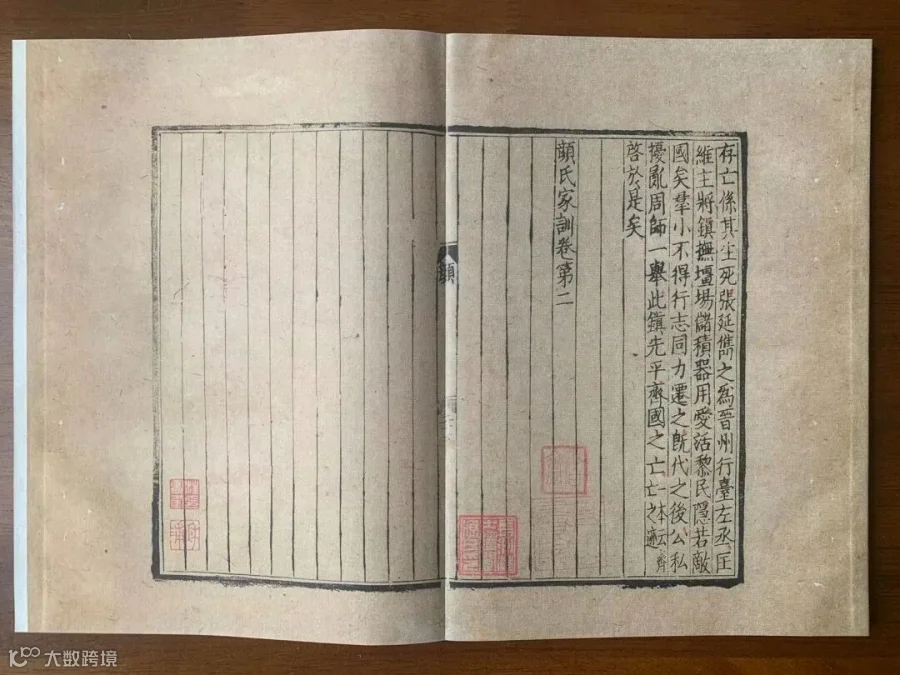 存亡係其生死張延雋之為晉州行臺左丞匡
維主將鎮撫壃場儲積器用愛活黎民隱若敵
國矣羣小不得行志同力遷之旣代之後公私
擾亂周師一舉此鎮先平齊國之亡一本云齊亡之迹
啓於是矣
顔氏家訓卷第二
顔
大数跨境